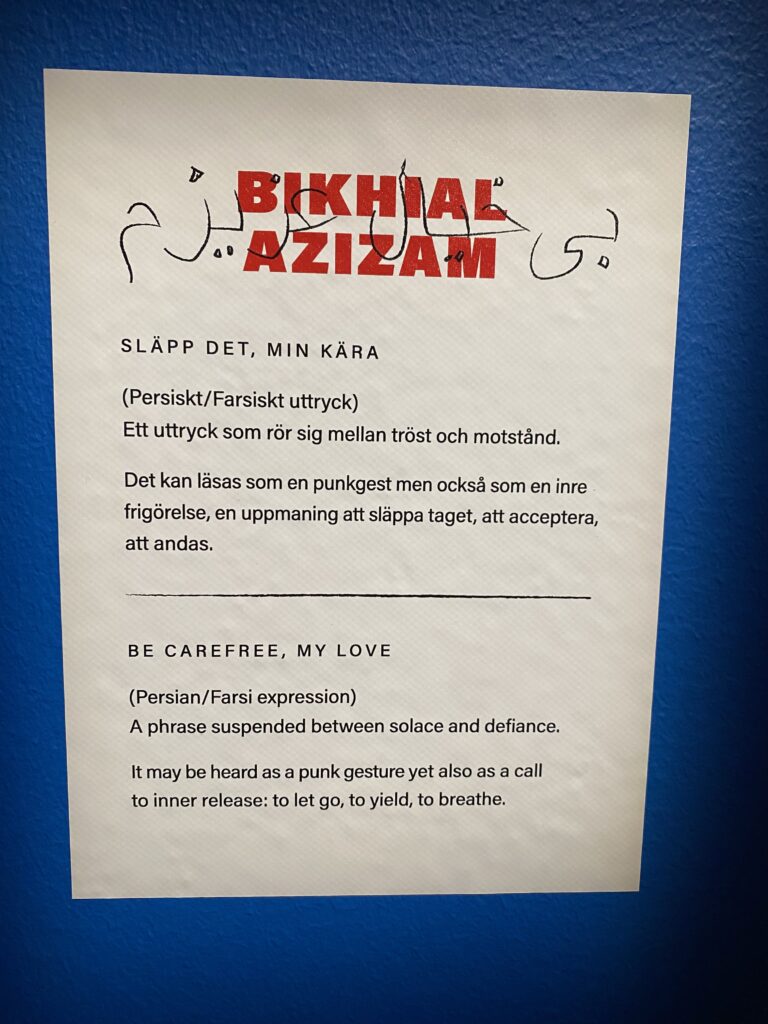 BIKHIAL
AZIZAM
بی خیال عزیزم
SLÄPP DET, MIN KÄRA
(Persiskt/Farsiskt uttryck)
Ett uttryck som rör sig mellan tröst och motstånd.
Det kan läsas som en punkgest men också som en inre
frigörelse, en uppmaning att släppa taget, att acceptera,
att andas.
BE CAREFREE, MY LOVE
(Persian/Farsi expression)
A phrase suspended between solace and defiance.
It may be heard as a punk gesture yet also as a call
to inner release: to let go, to yield, to breathe.